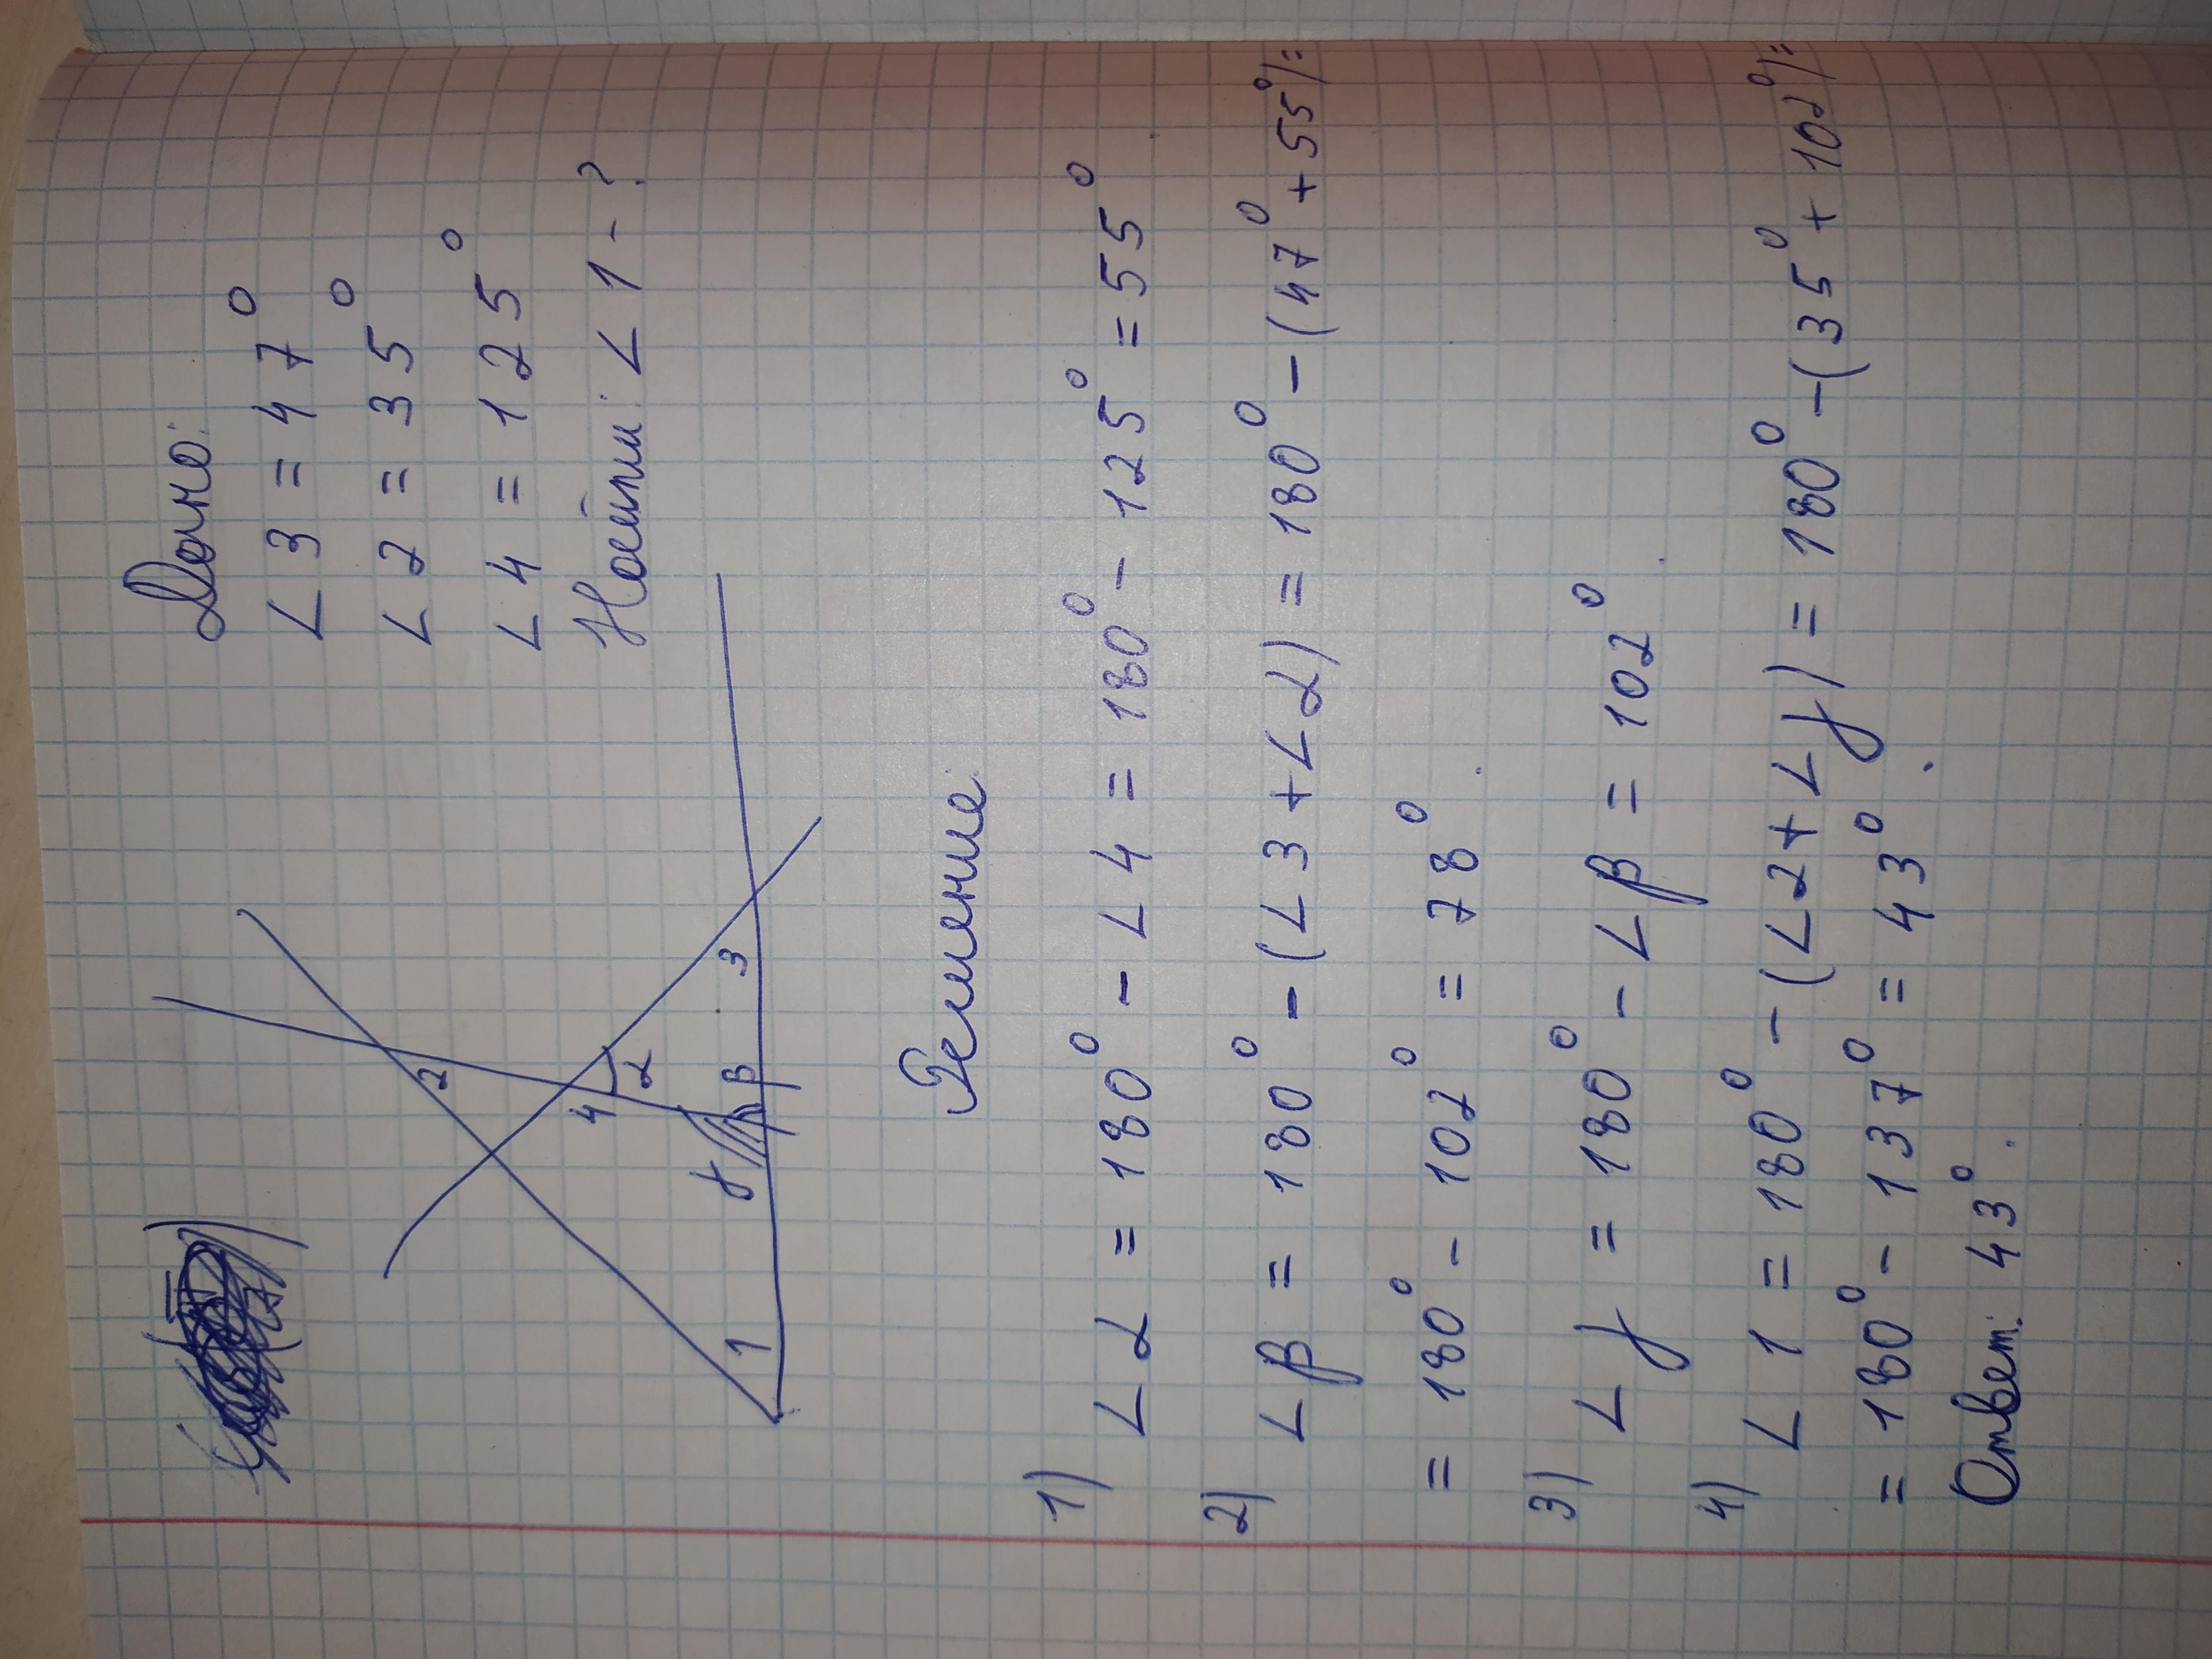 Дано:
∠3 = 47°
∠2 = 35°
∠4 = 125°
Найти: ∠1 - ?
2
4
α
3
β
γ
1
Решение:
1) ∠α = 180° - ∠4 = 180° - 125° = 55°
2) ∠β = 180° - (∠3 + ∠α) = 180° - (47° + 55°) =
= 180° - 102° = 78°.
3) ∠γ = 180° - ∠β = 102°.
4) ∠1 = 180° - (∠2 + ∠γ) = 180° - (35° + 102°) =
= 180° - 137° = 43°.
Ответ: 43°.